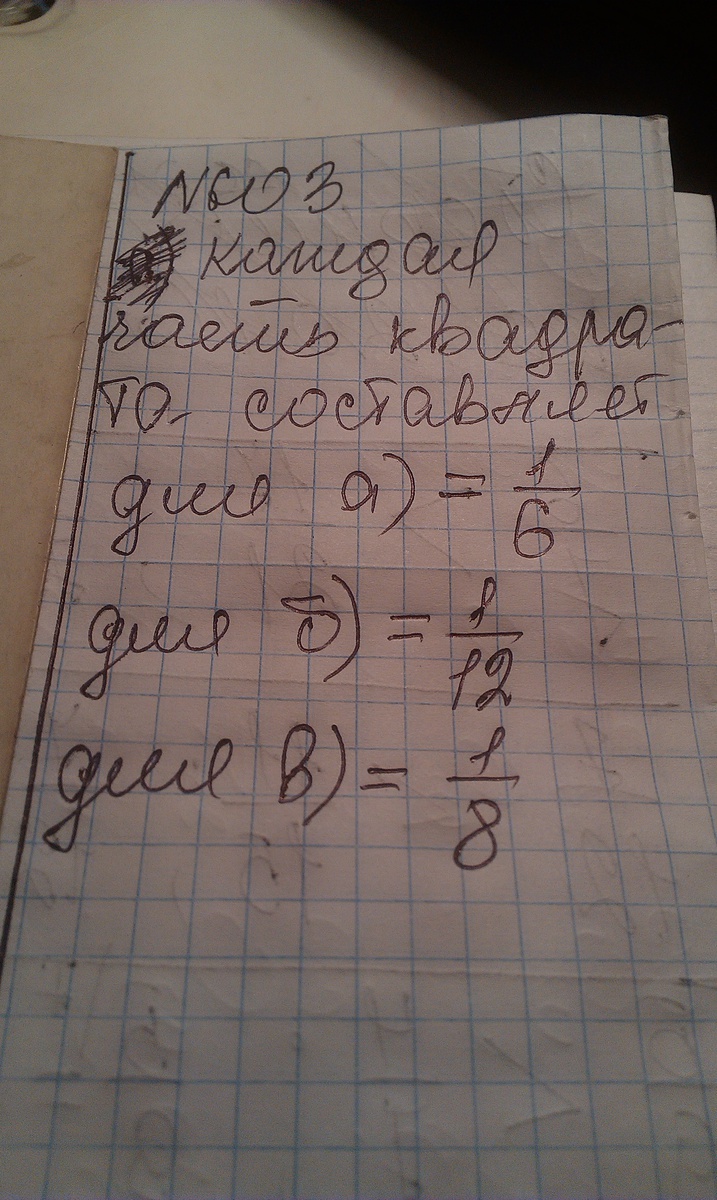 №603
каждая
часть квадра-
та составляет
для а) = 1/6
для б) = 1/12
для в) = 1/8